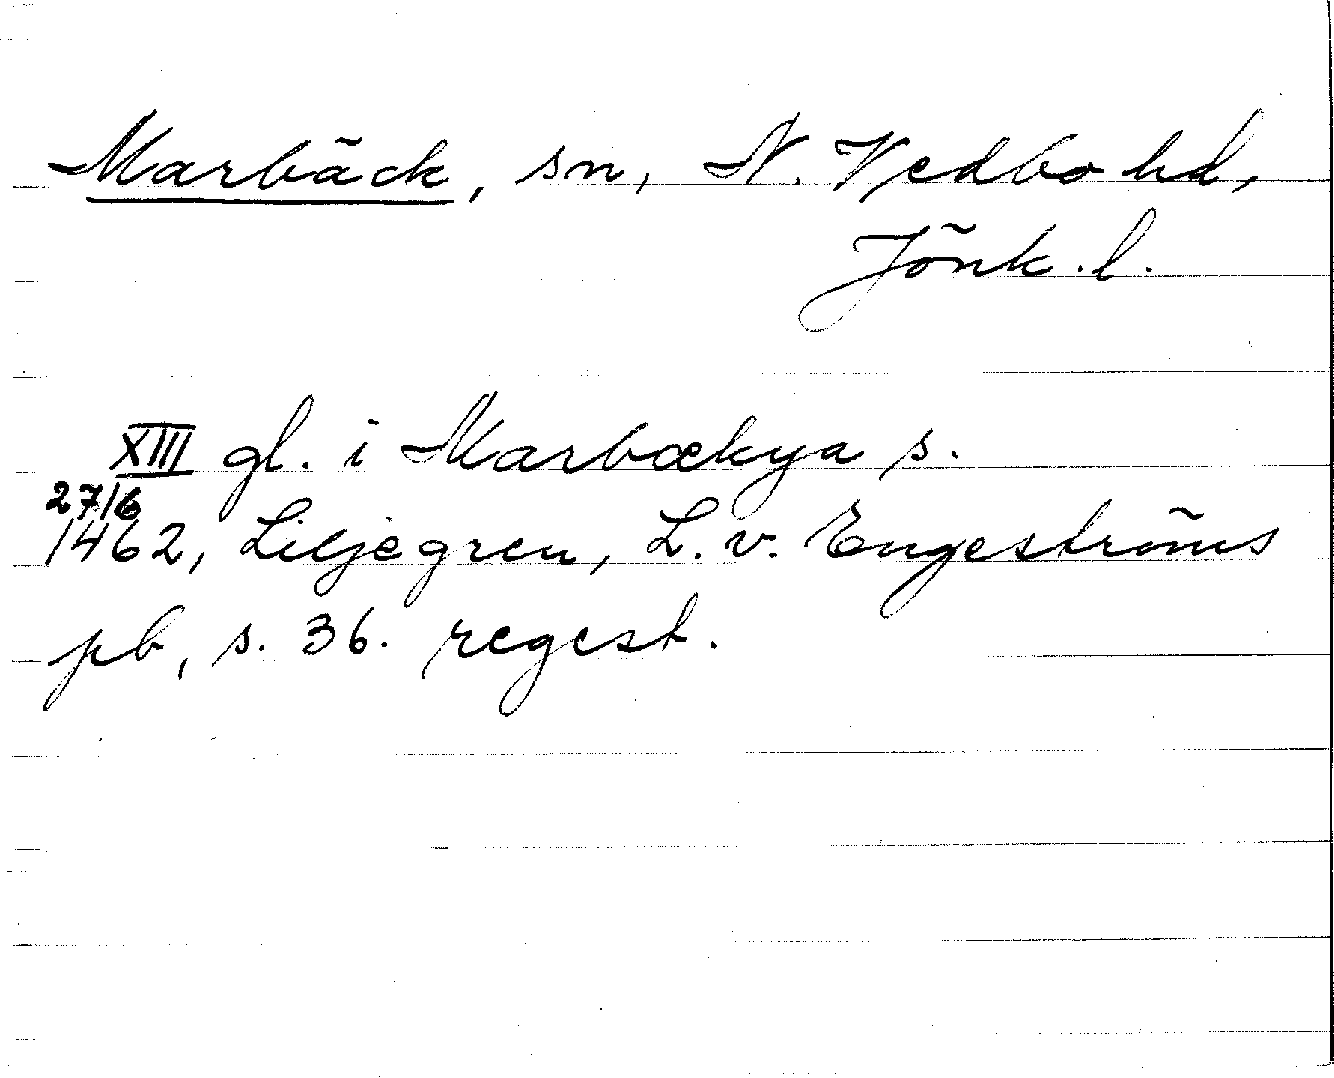 Marbäck, sn, N. Vedbo hd,
Jönk. l.
XIII gl. i Marbækya s.
27/6
1462, Liljegren, L. v. Engeströms
pb, s. 36. regest.